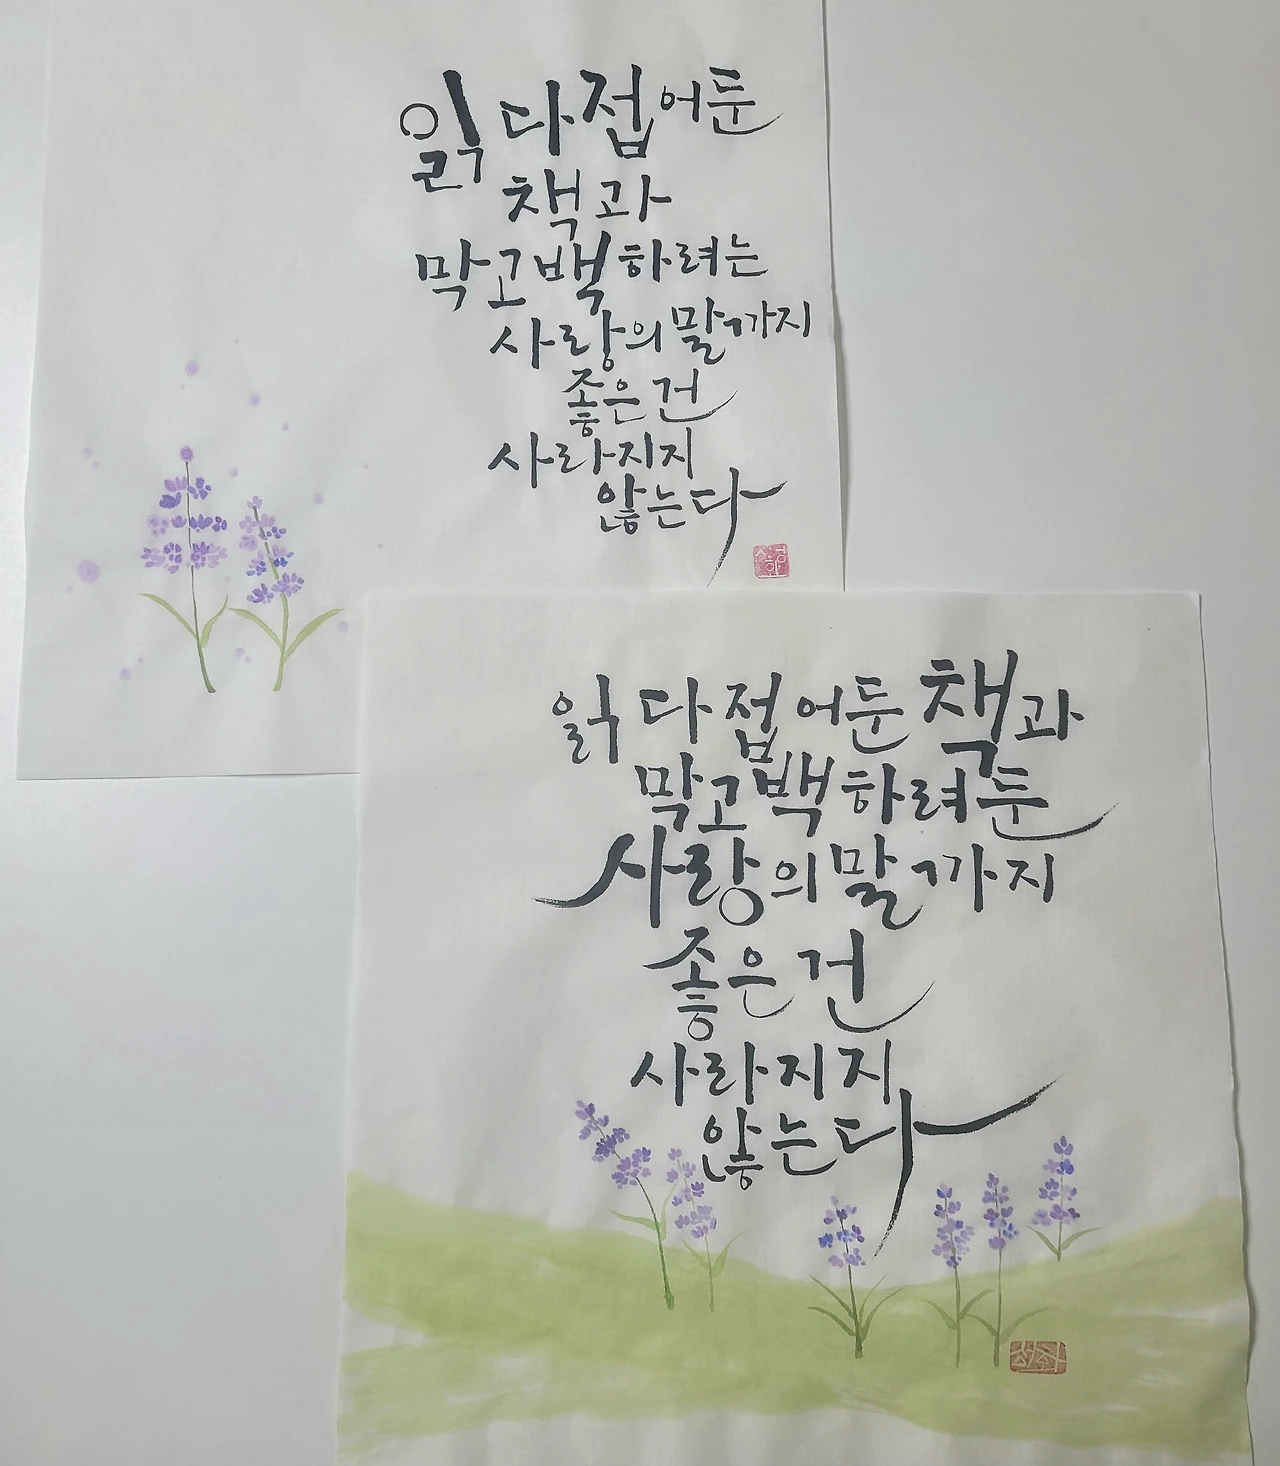 읽다 접어둔
책과
막 고백하려는
사랑의 말까지
좋은 건
사라지지
않는다
읽다 접어둔 책과
막 고백하려둔
사랑의 말까지
좋은 건
사라지지
않는다